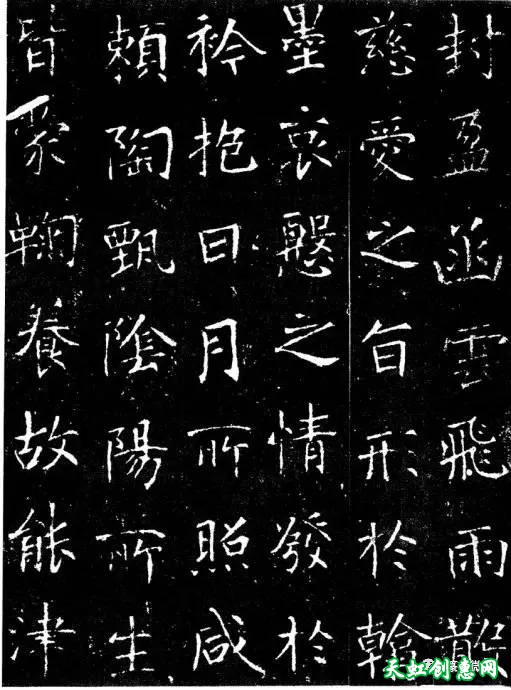 封盈函雲飛雨散
慈愛之旨形於翰
墨哀懇之情發於
衿抱日月所照咸
賴陶甄陰陽所生
皆蒙鞠養故能津
天虹创意网